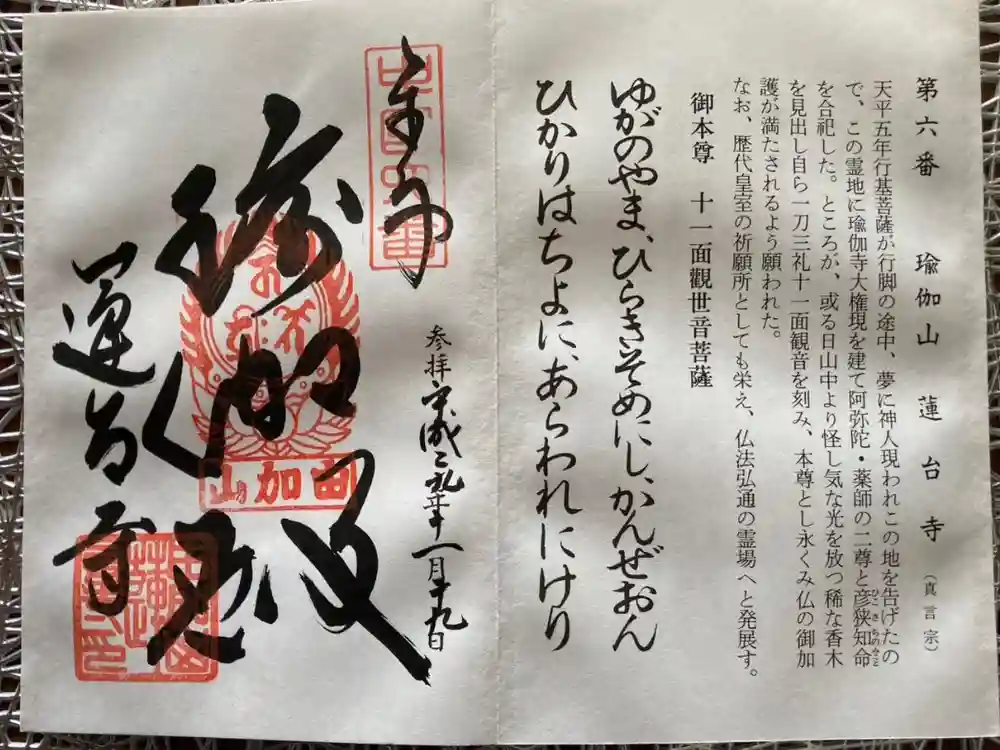 第六番　瑜伽山　蓮台寺（真言宗）
天平五年行基菩薩が行脚の途中、夢に神人現われこの地を告げたの
で、この霊地に瑜伽寺大権現を建て阿弥陀・薬師の二尊と彦狭知命
ひこさちのみこと
を合祀した。ところが、或る日山中より怪し気な光を放つ稀な香木
を見出し自ら一刀三礼十一面観音を刻み、本尊とし永くみ仏の御加
護が満たされるよう願われた。
なお、歴代皇室の祈願所としても栄え、仏法弘通の霊場へと発展す。
御本尊　十一面觀世音菩薩
ゆがのやま、ひらきそめにし、かんぜおん
ひかりはちよに、あらわれにけり
参拝
十一月十九日
瑜伽
蓮台寺
由加山